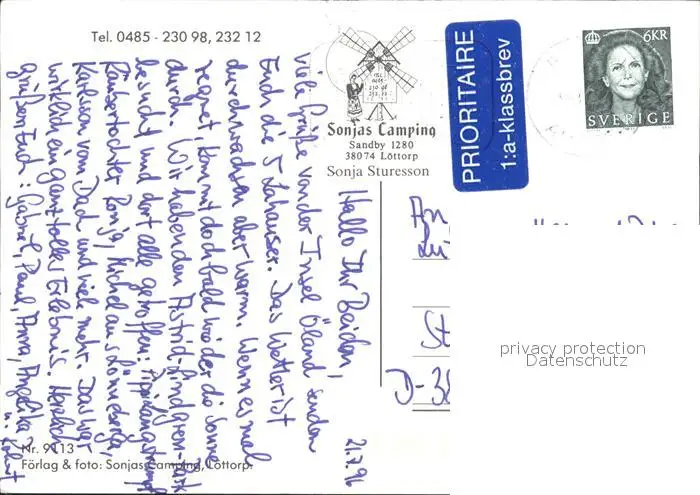 Tel. 0485 - 230 98, 232 12
Sonjas Camping
Sandby 1280
38074 Löttorp
Sonja Sturesson
PRIORITAIRE
1:a-klassbrev
6KR
SVERIGE
21.7.96
Hallo Ihr Beiden,
viele Grüße von der Insel Öland senden
Euch die 5 Lahauser. Das Wetter ist
durchwachsen aber warm. Wenn es mal
regnet, kommt doch bald wieder die Sonne
durch. Wir haben den Astrid-Lindgren-Park
besucht und dort alle getroffen: Pippi Langstrumpf
Räubertochter Ronja, Michel aus Lönneberga,
Karlsson vom Dach und viele mehr. Das war
wirklich ein ganz tolles Erlebnis. Herzlich
grüßen Euch: Gabriel, Paul, Anna, Angelika
u.
An
St
D-38
privacy protection
Datenschutz
Nr. 9113
Förlag & foto: Sonjas Camping, Löttorp.